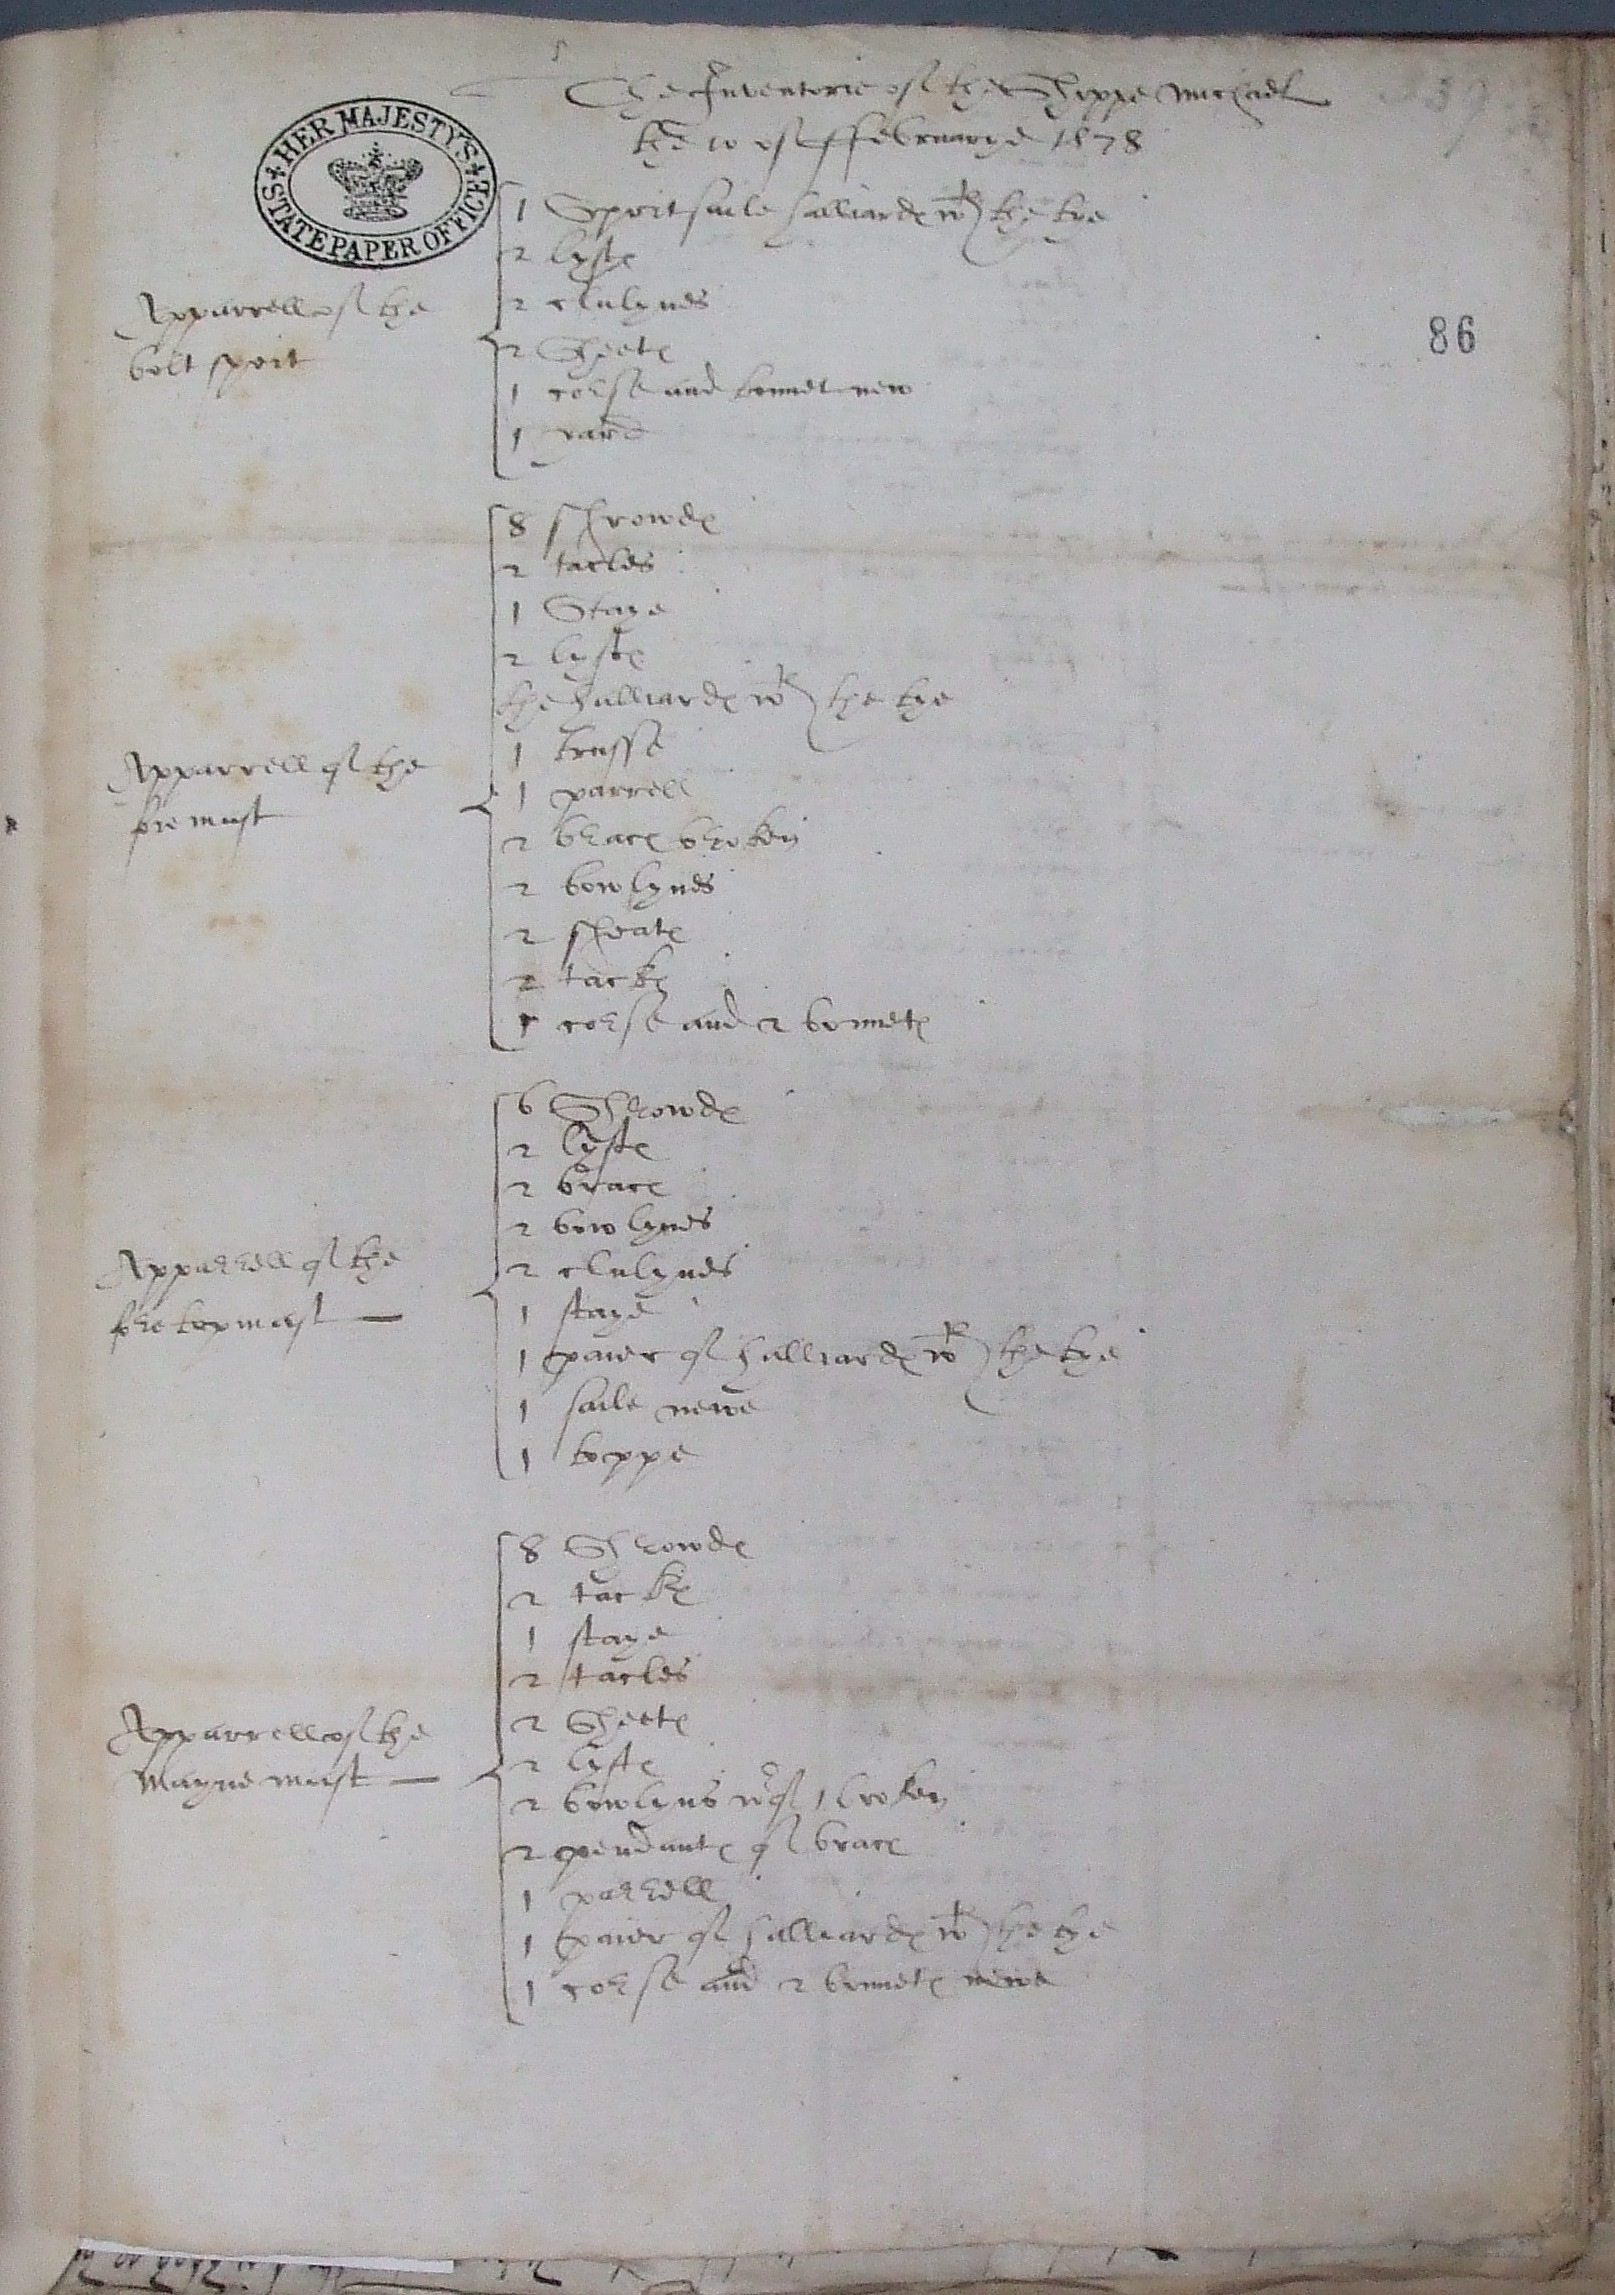 The Inventorie of the Shippe Michaell
the 10 of ffebruarye 1578
HER MAJESTY'S
STATE PAPER OFFICE
86
Apparrell of the
bolt sprit
1 Spritsaile halliardes wth the tye
2 lyftes
2 clulynes
2 Sheetes
1 corse and bonnet new
1 yard
Apparrell of the
fore mast
8 shrowdes
2 tacles
1 Staye
2 lyftes
the halliardes wth the tye
1 trusse
1 parrell
2 braces broken
2 bowlynes
2 sheates
2 tackes
1 corse and 2 bonnetes
Apparrell of the
fore topmast
6 Shrowdes
2 lyftes
2 braces
2 bowlynes
2 clulynes
1 staye
1 paier of halliardes wth the tye
1 saile newe
1 toppe
Apparrell of the
Mayne mast
8 Shrowdes
2 tackes
1 staye
2 tacles
2 Sheetes
2 lyftes
2 bowlyns wof 1 broken
2 pendantes of braces
1 parrell
1 paier of halliardes wth the tye
1 corse and 2 bonnetes newe